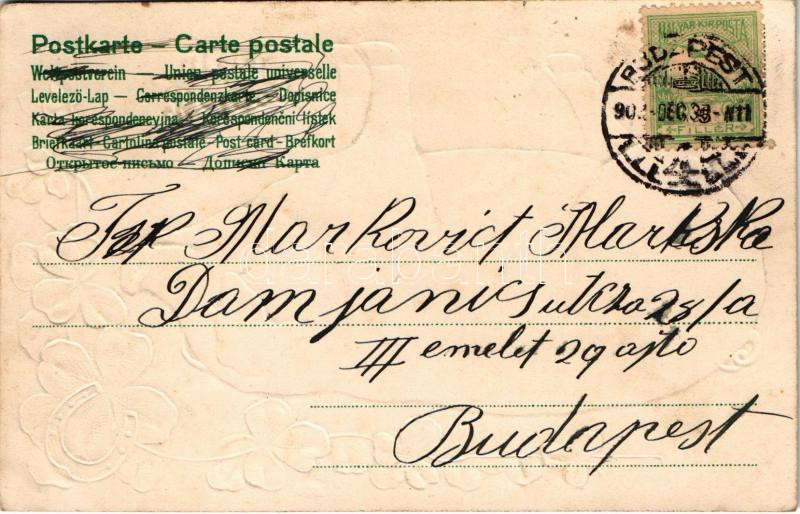 Postkarte – Carte postale
Weltpostverein — Union postale universelle
Levelezö-Lap — Correspondenzkarte — Dopisnice
Karta korespondencyjna — Korespondenční listek
Briefkaart - Cartolina postale - Post card - Brefkort
Открытое письмо — Дописна Карта
MAGYAR KIR. POSTA
FILLÉR
BUDAPEST
DEC.
Markovict
Damjanics utcza 28/a
III emelet 29 ajto
Budapest
darabanth